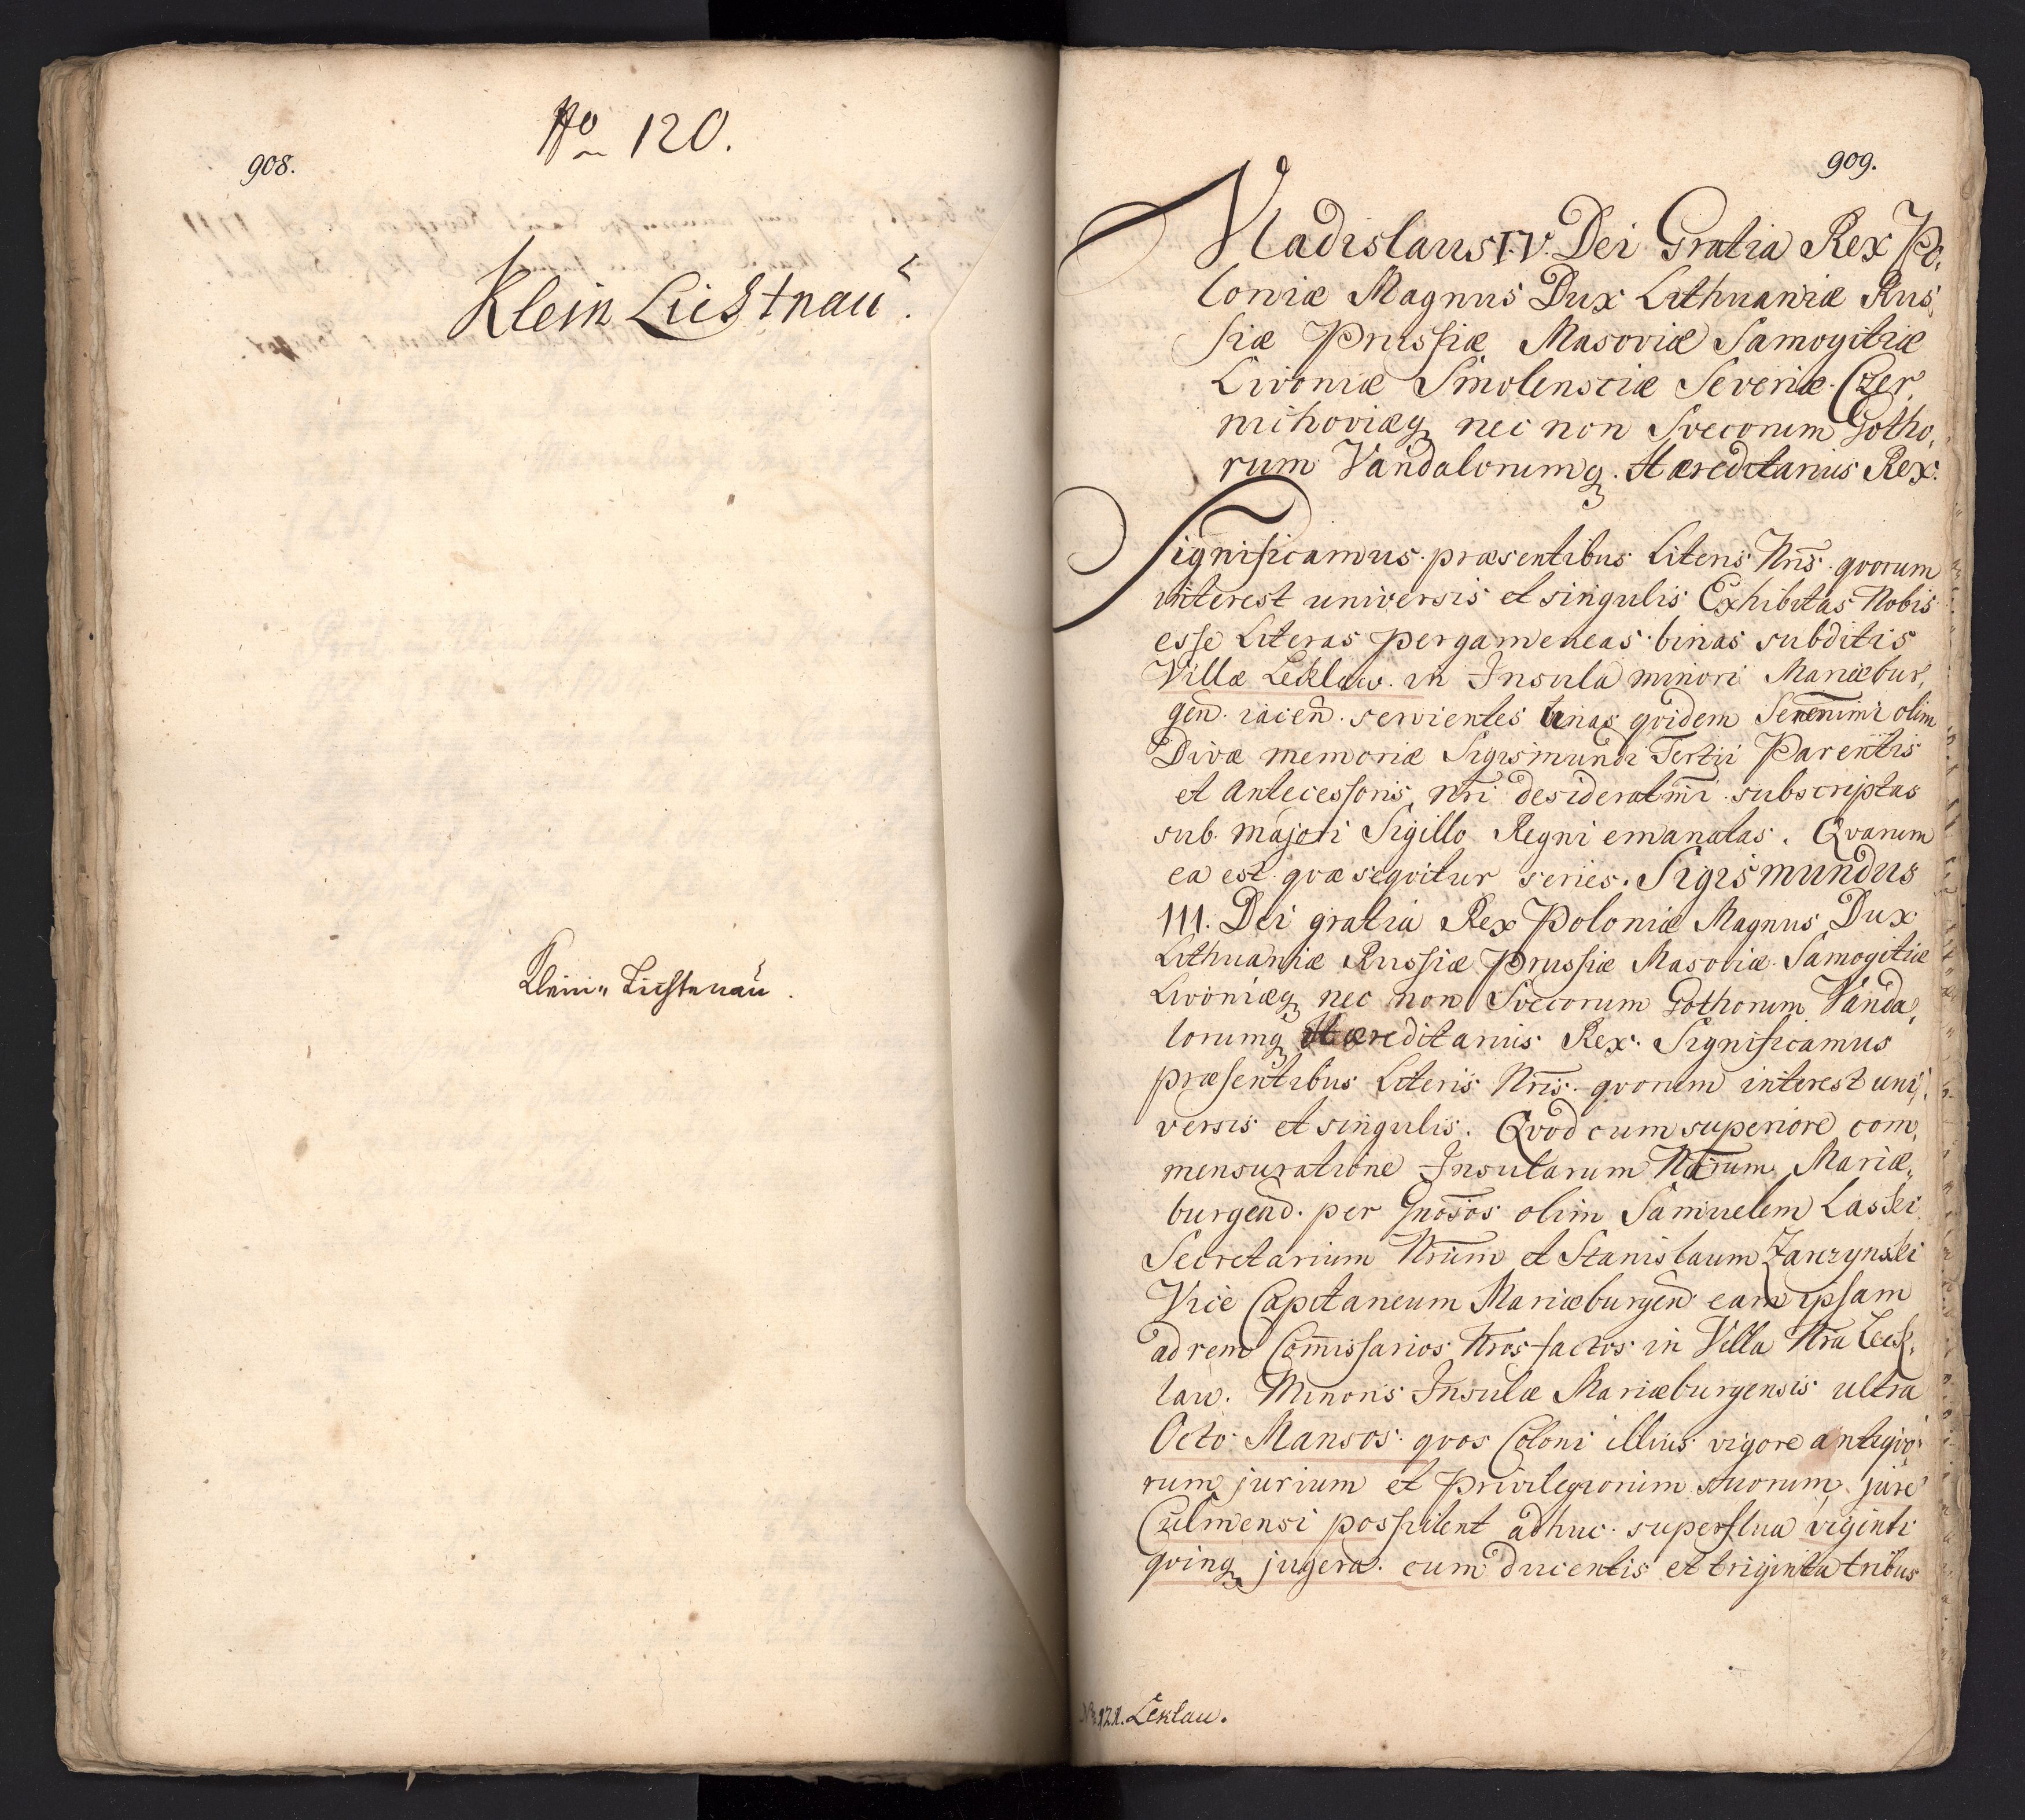 No 120.
908.
Klein Lichtnau.
Klein„ Lichtenau.
909.
Vladislaus IV. Dei Gratia Rex Po„
loniæ Magnus Dux Lithuaniæ Rus„
siæ Prussiæ Masoviæ Samogitiæ
Livoniæ Smolensciæ Severiæ Czer„
nichoviæq nec non Svecorum Gotho„
rum Vandalorumq. Hæreditarius Rex.
Significamus præsentibus Literis Nris. qvorum
interest universis et singulis Exhibitas Nobis
esse Literas pergameneas binas subditis
Villæ Leklaw. in Insula minori Mariæbur„
gen. iacen. servientes unas qvidem Serenimi olim
Divæ memoriæ Sigismundi Tertii Parentis
et Antecessoris nri desideratmi subscriptas
sub. majori Sigillo Regni emanatas. Qvarum
ea est qvæ seqvitur series. Sigismundus
III. Dei gratia Rex Poloniæ Magnus Dux
Lithuaniæ Russiæ Prussiæ Masoviæ Samogitiæ
Livoniæq nec non Svecorum Gothorum Vanda„
lorumq Hæreditarius Rex. Significamus
præsentibus Literis Nris. qvorum interest uni„
versis et singulis. Qvod cum superiore com„
mensuratione Insularum Nrarum Mariæ„
burgend. per Gnosos olim Samuelem Laski
Secretarium Nrum et Stanislaum Zanczynski
Vice Capitaneum Mariæburgen eam ipsam
ad rem Commissarios Nros factos in Villa Nra Leck„
law. Minoris Insulæ Mariæburgensis ultra
Octo Mansos qvos Coloni illius vigore antiqvo
rum jurium et Privilegiorum suorum jure
Culmensi possident adhuc superflua viginti
qvinq jugera. cum ducentis et triginta tribus
No 121. Leklau.